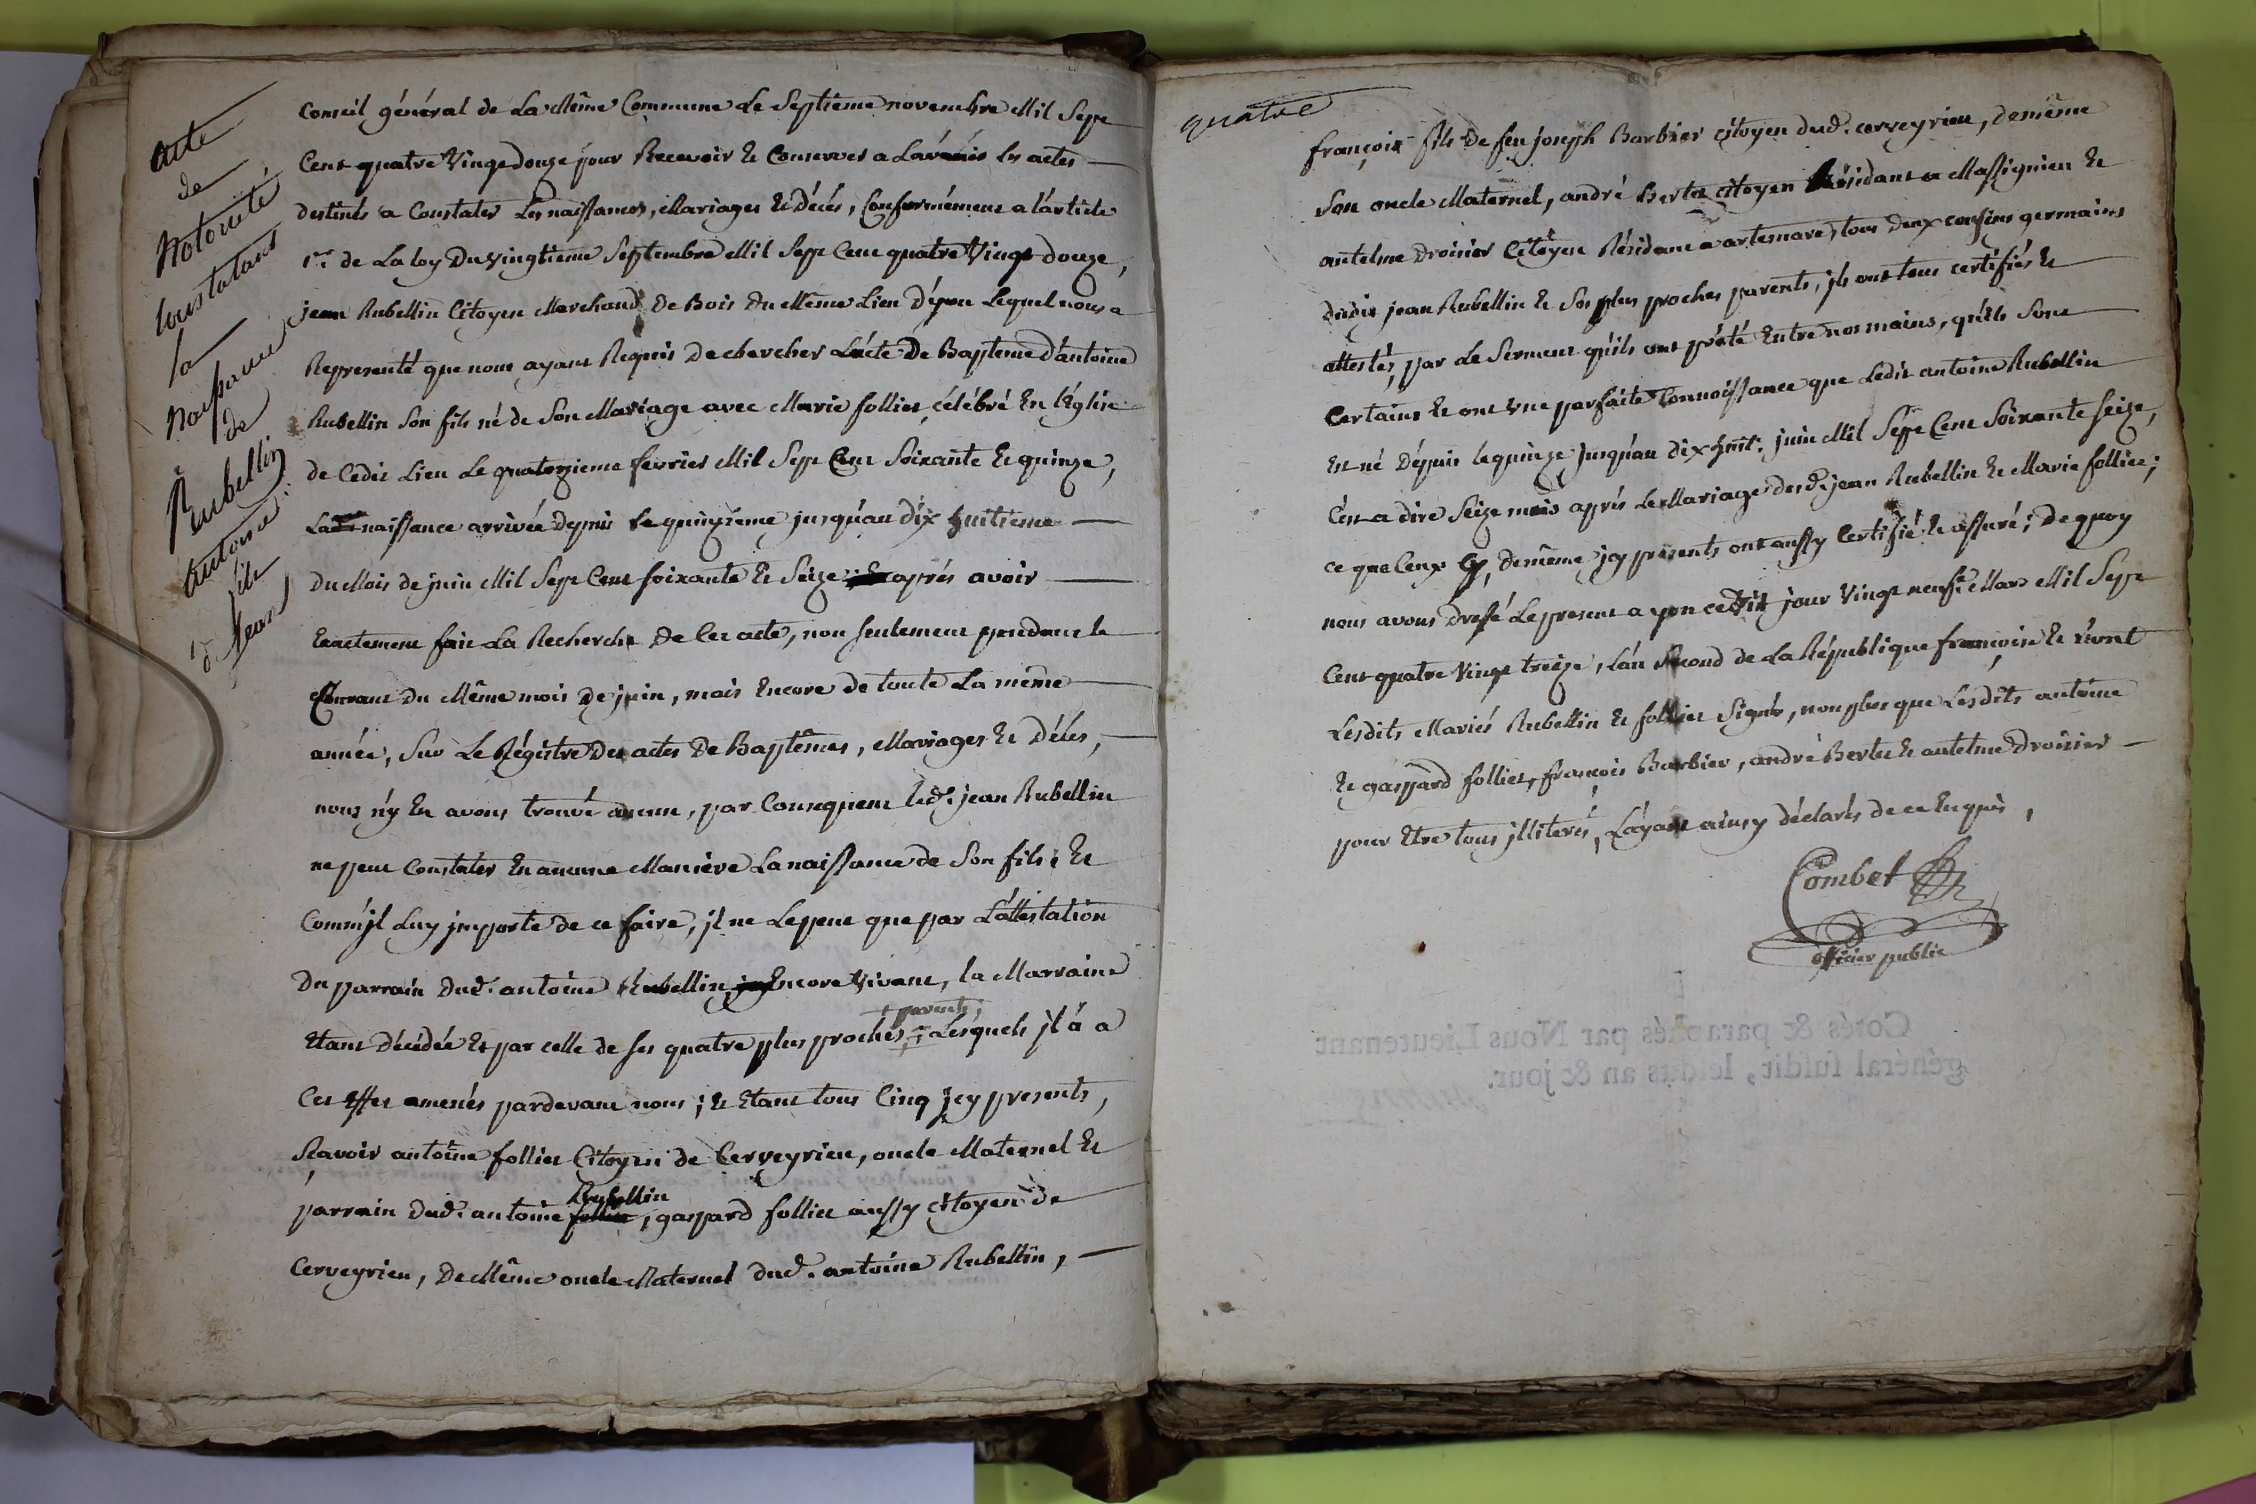 acte
de
Notorieté
Constatant
la
Naissance
de
Rubellin
Antoine
fils
d. Jean
Conseil général de La Même Commune Le Septieme novembre Mil Sept
Cent quatre Vingt douze pour Recevoir et Conserver a L'avenir les actes
destinés a Constater Les naissances, Mariages et Décés, Conformément a l'article
1er. de La loy Du vingtieme Septembre Mil Sept Cent quatre Vingt douze,
jean Rubellin Citoyen Marchand De Bois du Même Lieu d'yon Lequel nous a
Representé que nous ayant Requis De chercher L'acte De Bapteme d'antoine
Rubellin Son fils né de Son Mariage avec Marie folliet, célébré En l'Église
de Cedit Lieu Le quatorzieme fevrier Mil Sept Cent Soixante et quinze,
La naissance arrivée Depuis le quinzieme jusqu'au dix huitieme
Du Mois de juin Mil Sept Cent soixante et Seize; après avoir
Exactement fait La Recherche De Cet acte, non seulement pendant le
Courant du Même mois De juin, mais Encore de toute La même
année, Sur Le Régistre Des actes De Baptêmes, Mariages et Décés,
nous n'y En avons trouvé aucun, par Consequent Led. jean Rubellin
ne peut Constater En aucune Maniere La naissance de Son fils; Et
Comm'jl Luy jmporte de ce faire, jl ne Le peut que par L'attestation
Du parrain dud. antoine Rubellin, Encore Vivant, la Marraine
+ parents;
Etant Décédée Et par celle de ses quatre plus proches, + Lesquels jl a a
Cet effet amenés pardevant nous; et Etant tous Cinq jcy presents,
Sçavoir antoine folliet Citoyen de Cerveyrieu, oncle Maternel Et
Rubellin
parrain dud. antoine folliet, gaspard folliet aussy citoyen de
Cerveyrieu, De Même oncle Maternel dud. antoine Rubellin,
quatre
françois fils De feu joseph Barbier citoyen dud. cerveyrieu, de même
Son oncle Maternel, andré Bertet citoyen Résidant a Massignieu Et
antelme Droisier Citoyen Résidant a artemare, tous deux cousins germains
dudit jean Rubellin et Ses plus proches parents, jls ont tous certifiés Et
attestés, par Le Serment qu'ils ont prété Entre nos mains, qu'ils Sont
Certains Et ont une parfaite Connoissance que Ledit antoine Rubellin
Est né Dépuis le quinze jusqu'au dix huit. juin Mil Sept Cent Soixante Seize,
C'est a dire Seize mois après Le Mariage desd. jean Rubellin Et Marie folliet;
ce que Ceux cy, de même jcy présents ont aussy Certifié Et assuré; De quoy
nous avons Dressé Le present a yon cedit jour Vingt neufe. Mars Mil Sept
Cent quatre Vingt treize, L'an Second de La République françoise Et n'ont
Lesdits Mariés Rubellin Et folliet Signés, non plus que Lesdits antoine
Et gaspard folliet, françois Barbier, andré Bertet Et antelme Droisier
pour Etre tous jlliterés, L'ayant ainsy déclarés de ce Enquis,
Combet
officier public
Cotés & paraphés par Nous Lieutenant
général susdit, lesdits an & jour.